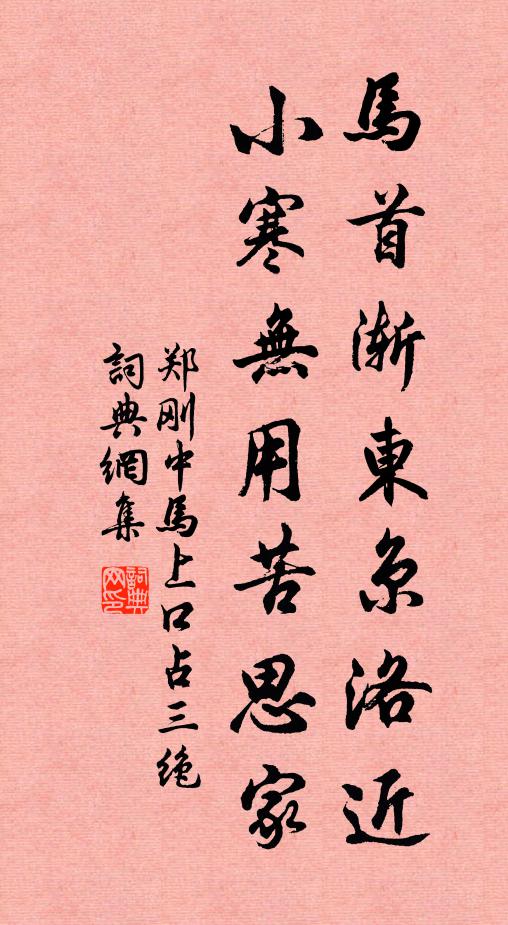 馬首漸東京洛近
小寒無用苦思家
郑刚中馬上口占三绝
詞典網集
詞典网印